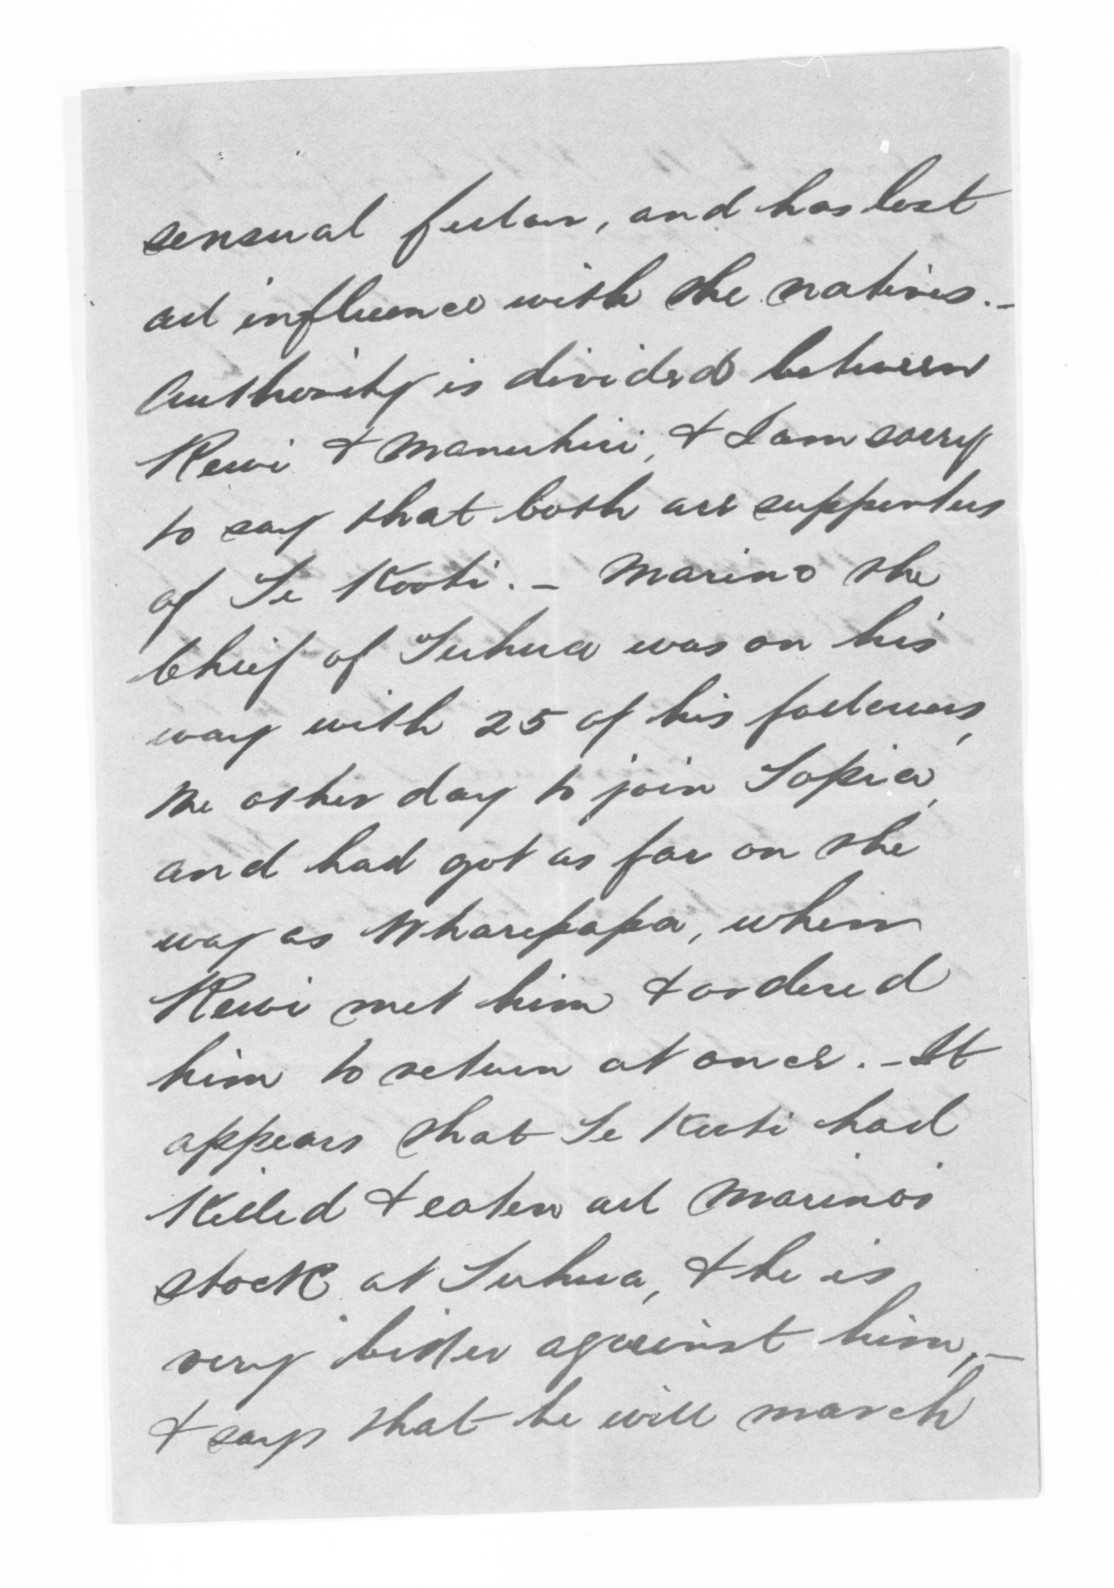 sensual fellow, and has lost
all influence with the natives. -
Authority is divided between
Rewi & Manuhiri, & I am sorry
to say that both are supporters
of Te Kooti. - Marino the
Chief of Tuhua was on his
way with 25 of his followers,
the other day to join Topia,
and had got as far on the
way as Wharepapa, when
Rewi met him & ordered
him to return at once. - It
appears that Te Kooti had
killed & eaten all Marino's
stock at Tuhua, & he is
very bitter against him, -
& says that he will march